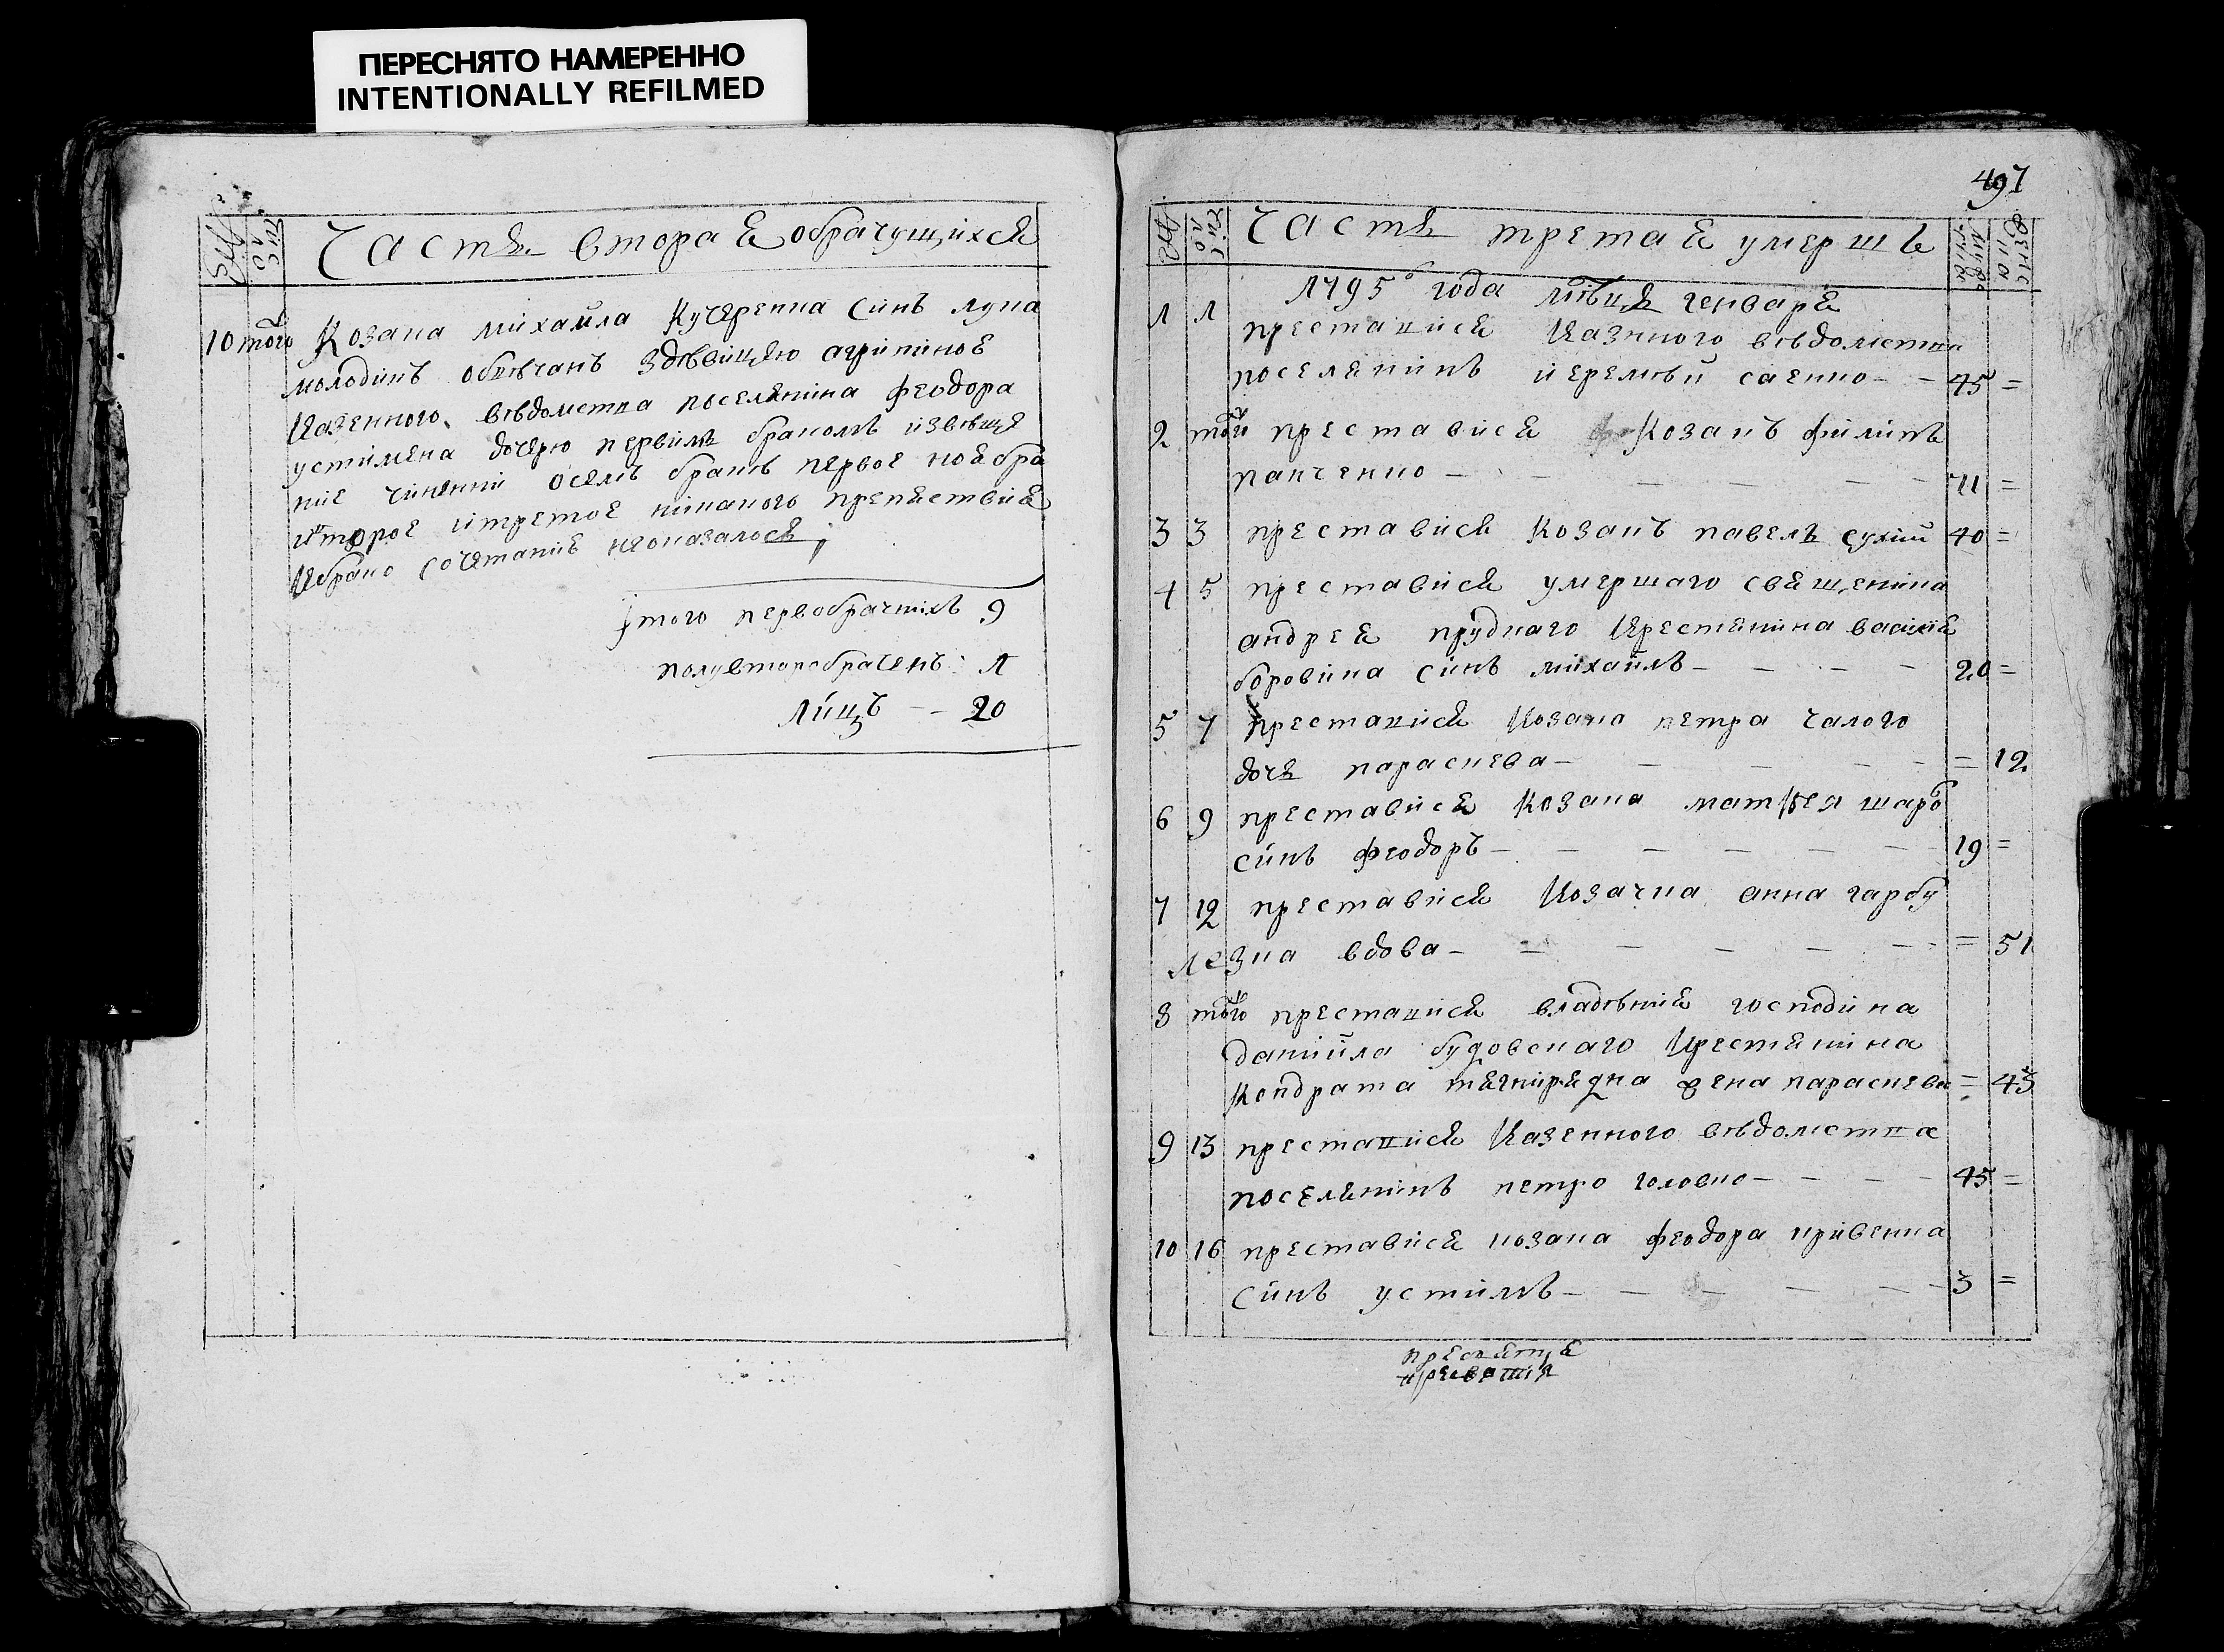 ПЕРЕСНЯТО НАМЕРЕННО
INTENTIONALLY REFILMED
число
Часть втораѧ обрачущихсѧ
10 того Козака михайла Кучеренка синъ лука
молодикъ обвѣнчанъ здѣвицею агрипиноѧ
Казенного вѣдомства поселянина феодора
устимена дочерю первимъ бракомъ извѣще
ние чинении осемъ бракѣ первое ноѧбра
второе итретое никакого препѧствиѧ
Кбрако сочетанию неоказалось
Итого первобрачнихъ 9
полуторобраченъ 1
Лицъ — 20
497
число
мужеска
женска
Часть третаѧ умершъ
1795 года мѣсѧцѧ генварѧ
1 1 преставися Казенного вѣдомства
поселѧнинъ иеремѣй саенко — 45 =
2 того преставися Козакъ филипъ
панченко — 71 =
3 3 преставися Козакъ павелъ сухий 40 =
4 5 преставися умершаго свѧщеника
андреѧ прудкаго Крестѧнина василиѧ
боровика синъ михайлъ — 20 =
5 7 преставися Козака петра чалого
дочь параскева — = 12
6 9 преставися Козака матвея шарб
синъ феодоръ — 19 =
7 12 преставися Козачка анна гарбу
зна вдова — = 51
8 того преставися владѣниѧ господина
даниила будовскаго Крестѧнина
Кондрата тѧгнирѧдна жена параскева = 45
9 13 преставися Казенного вѣдомства
поселѧнинъ петро головко — 45 =
10 16 преставися козака феодора кривенка
синъ устимъ — 3 =